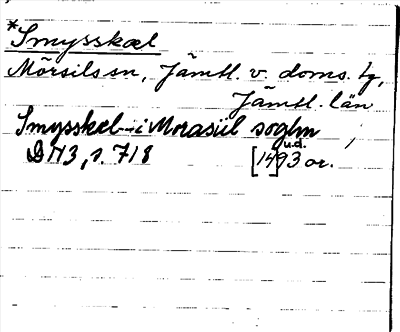 *Smysskæl
Mörsils sn, Jämtl. v. doms. tg,
Jämtl. län
Smysskel – i Morasiil soghn
DN3, s. 718 [14]93 u.d. or.